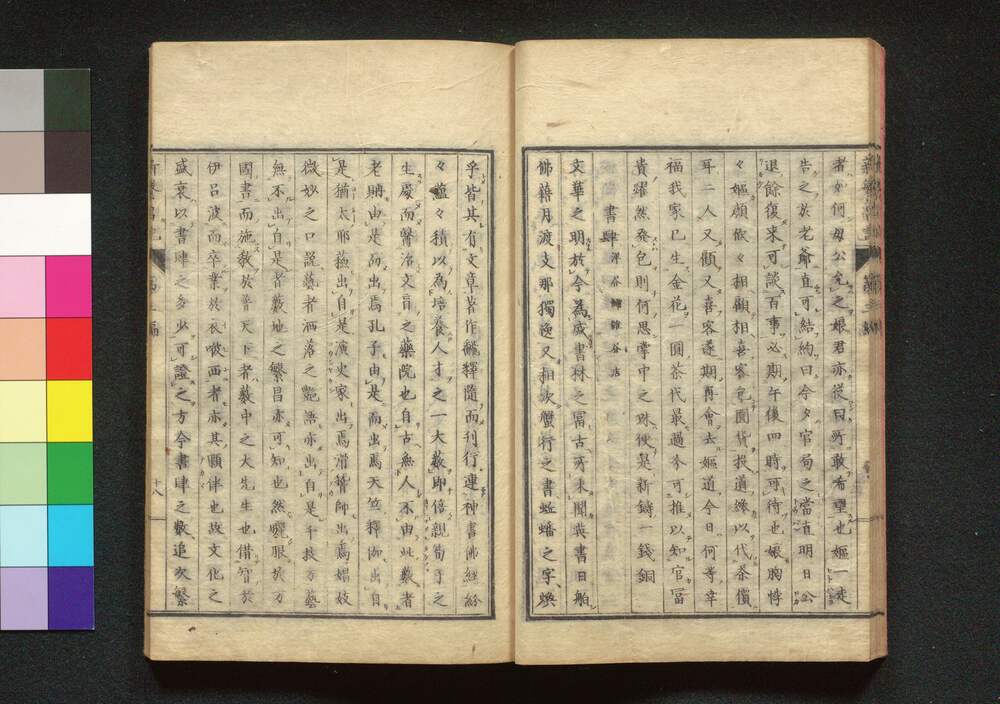 者如何母公允之娘君亦從曰所敢希望也嫗一走
告之於老爺直可結納曰今夕官局之當直明日公
退餘復来可談百事必期午後四時可待也娘胸悸
々嫗頗欣々相顧相喜客乞圓貨投道緣以代茶儥
耳二人又顧又喜客遂期再會去嫗道今日何等幸
福我家已生金花一圓茶代最過今可推以知官冨
貴躍然発色則何思掌中之珠便是新鋳一錢銅
書肆
文華之明於今為盛書林之冨古所未聞英書日舶
佛藉月渡支那獨逸又相次蟹行之書蜿蟠之字煥
乎皆其有文章著作觧釋隨而刊行連神書佛経紛
々藴々積以為培養人才之一大薮即倍親筍子之
生慶而醫治文盲之藥院也自古無人不由此薮者
老賜由是而出焉孔子由是而出焉天竺釋伽出自
是猶太耶蘓出自是演史家出焉滑䅣師出焉媚妓
微妙之口説藝者洒落之艶語亦出自是千技万藝
無不出自是者薮地之繁昌亦可知也然曉眼於万
國書而施教於普天下者薮中之大先生也借智於
伊呂波而卒業於衣啾西者亦其顧伴也故文化之
盛衰以書肆之多少可證之方今書肆之數追次繁
十八